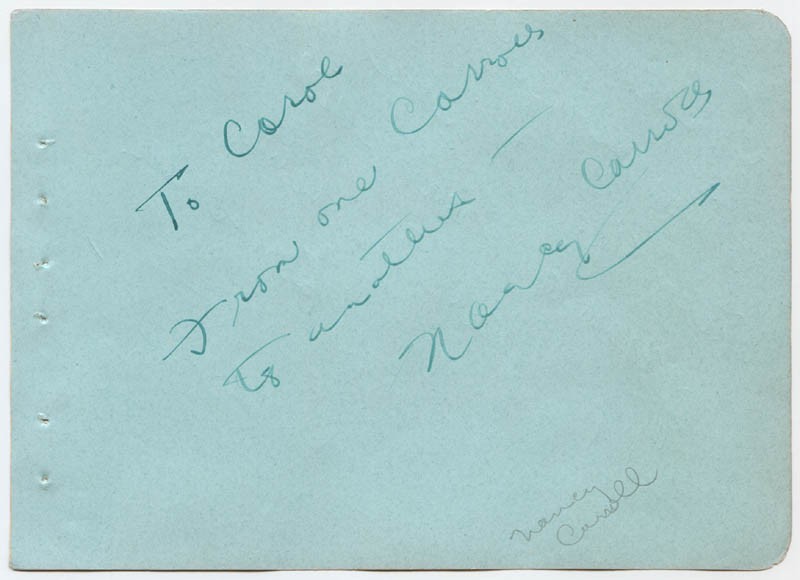 To Carole
From one Carroll
to another —
Nancy Carroll
Nancy
Carroll